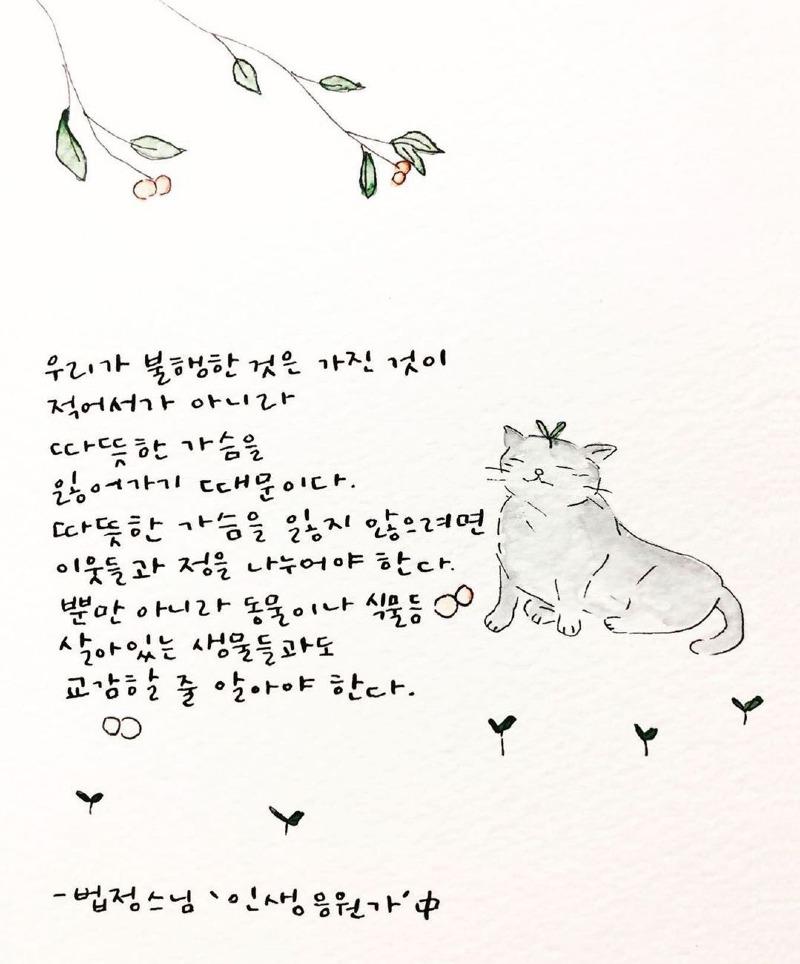 우리가 불행한 것은 가진 것이
적어서가 아니라
따뜻한 가슴을
잃어가기 때문이다.
따뜻한 가슴을 잃지 않으려면
이웃들과 정을 나누어야 한다.
뿐만 아니라 동물이나 식물등
살아있는 생물들과도
교감할 줄 알아야 한다.
-법정스님 '인생응원가' 中